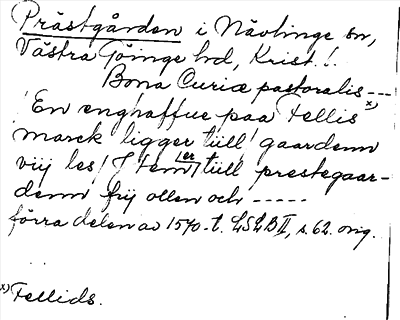 Prästgården i Nävlinge sn,
Västra Göinge hd, Krist. l.
Bona Curiæ pastoralis ---
"En enghaffue paa Fellis x)
marck ligger tiill gaardenn
viij les! Item er tiill prestegaar-
denn frij ollen och -----
förra delen av 1570-t. LSLB II, s. 62. orig.
x) Fellids.